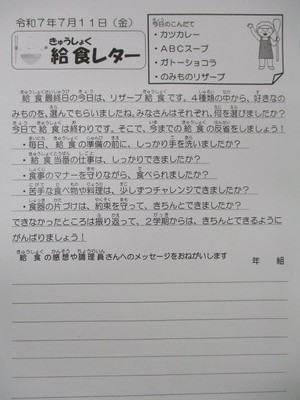 令和7年7月11日（金）
給食レター
今日のこんだて
・カツカレー
・ABCスープ
・ガトーショコラ
・のみものリザーブ
給食最終日の今日は、リザーブ給食です。4種類の中から、好きなの
みものを、選んでもらいましたね。みなさんはそれぞれ、何を選びましたか？
今日で給食は終わりです。そこで、今までの給食の反省をしましょう！
・毎日、給食の準備の前に、しっかり手を洗いましたか？
・給食当番の仕事は、しっかりできましたか？
・食事のマナーを守りながら、食べられましたか？
・苦手な食べ物や料理は、少しずつチャレンジできましたか？
・食器の片づけは、約束を守って、きちんとできましたか？
できなかったところは振り返って、2学期からは、きちんとできるように
がんばりましょう！
給食の感想や調理員さんへのメッセージをおねがいします　年　組